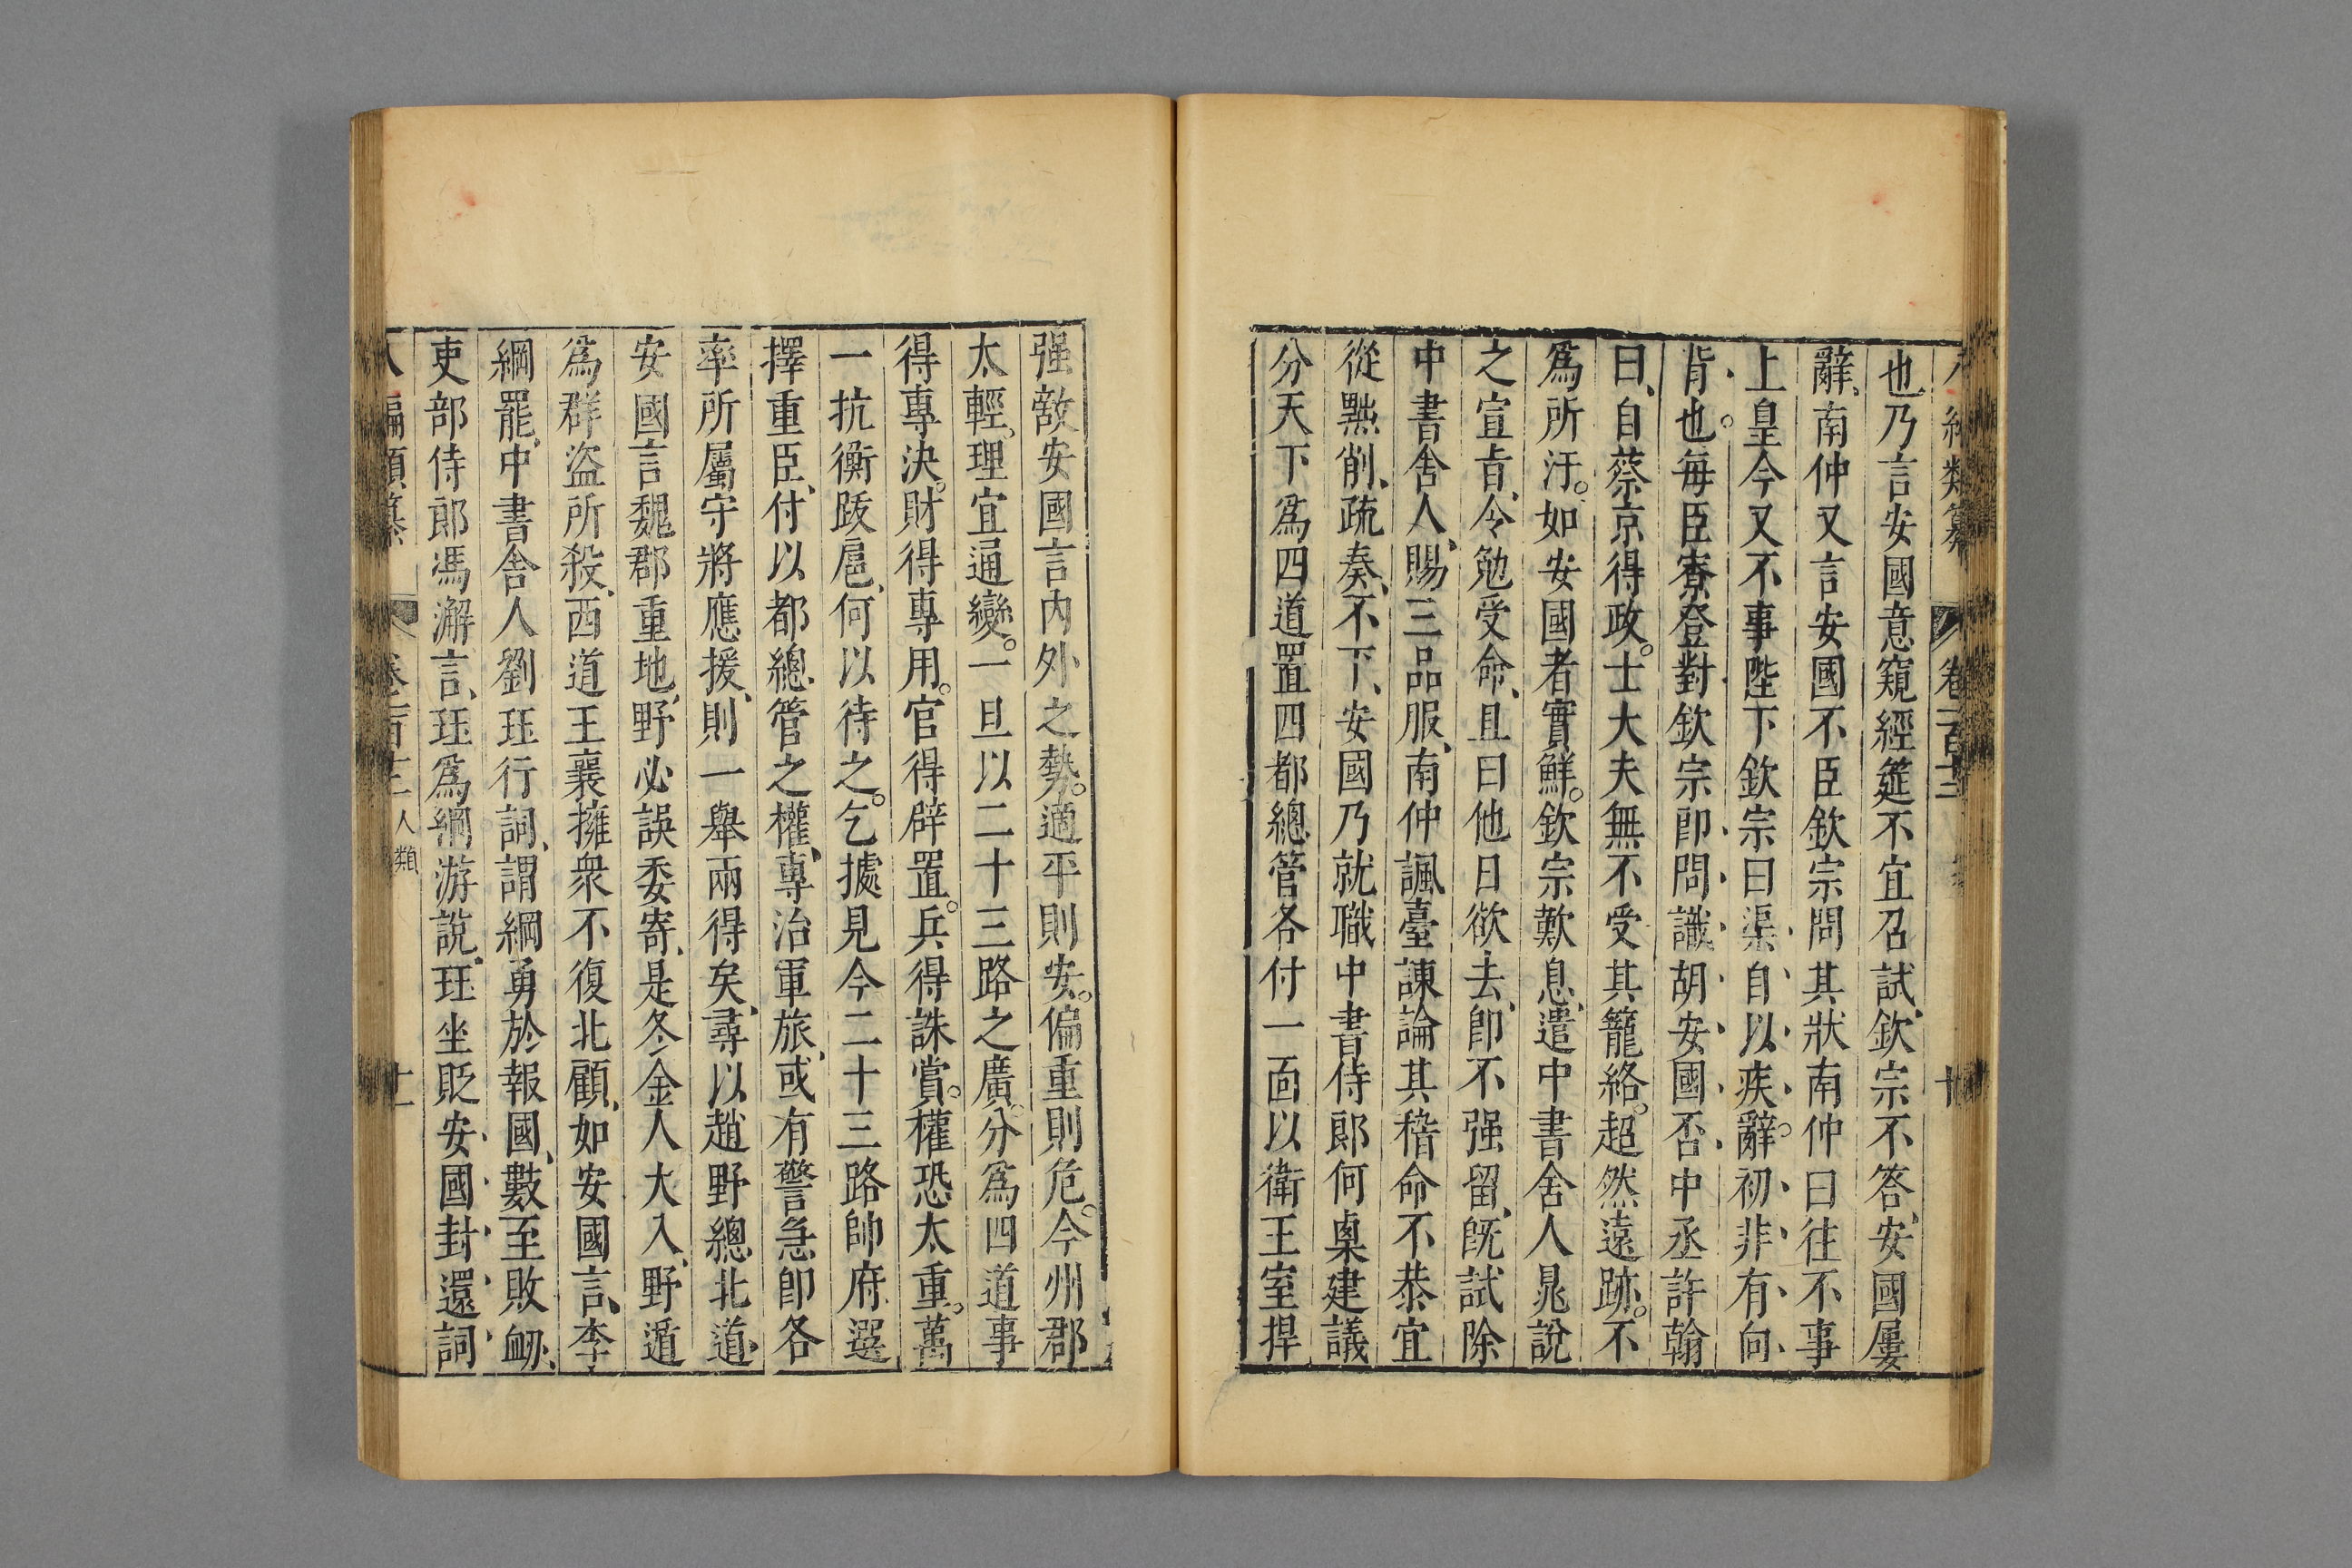 也乃言安國意窺經筵不宜召試欽宗不答安國屢
辭南仲又言安國不臣欽宗問其狀南仲曰往不事
上皇今又不事陛下欽宗曰渠自以疾辭初非有向
背也每臣寮登對欽宗卽問識胡安國否中丞許翰
曰自蔡京得政士大夫無不受其籠絡超然遠跡不
爲所汙如安國者實鮮欽宗歎息遣中書舍人晁說
之宣旨令勉受命且曰他日欲去卽不强留旣試除
中書舍人賜三品服南仲諷臺諫論其稽命不恭宜
從黜削疏奏不下安國乃就職中書侍郎何㮚建議
分天下爲四道置四都總管各付一面以衛王室捍
强敵安國言內外之勢適平則安偏重則危今州郡
太輕理宜通變一旦以二十三路之廣分爲四道事
得專決財得專用官得辟置兵得誅賞權恐太重萬
一抗衡跋扈何以待之乞據見今二十三路帥府選
擇重臣付以都總管之權專治軍旅或有警急卽各
率所屬守將應援則一舉兩得矣尋以趙野總北道
安國言魏郡重地野必誤委寄是冬金人大入野遁
爲群盜所殺西道王襄擁衆不復北顧如安國言李
綱罷中書舍人劉珏行詞謂綱勇於報國數至敗衂
吏部侍郎馮澥言珏爲綱游說珏坐貶安國封還詞
八編類纂 卷二百十三 人類 十一